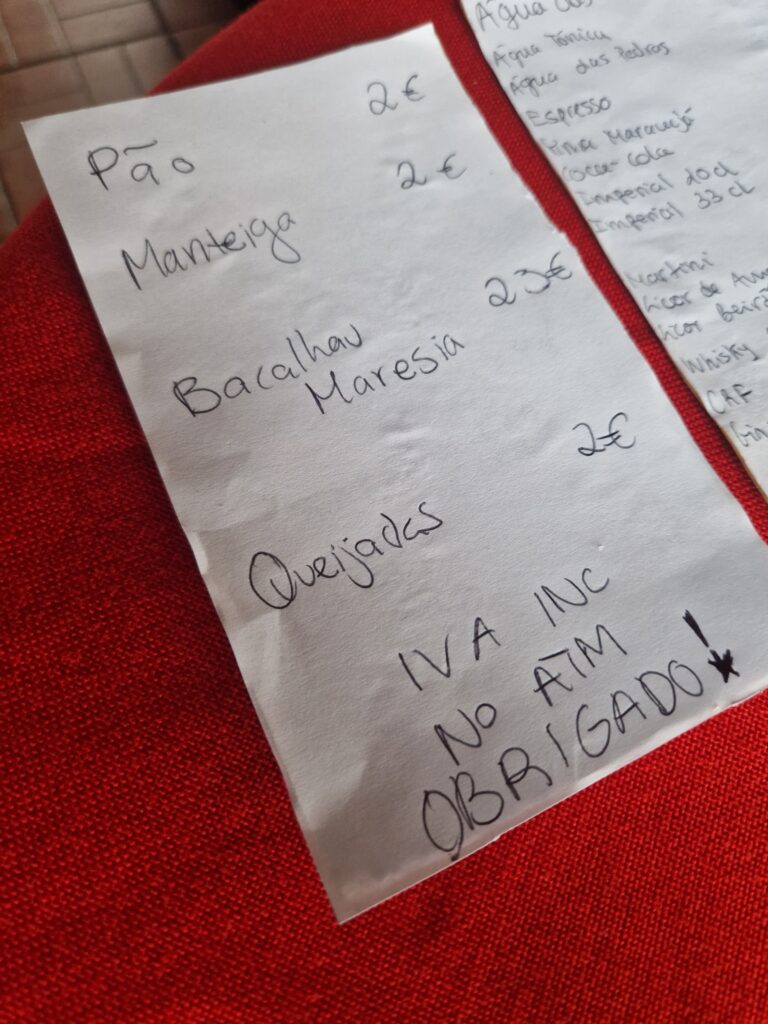 Pão 2€
Manteiga 2€
Bacalhau 23€
Maresia
Queijadas 2€
IVA INC
NO ATM
OBRIGADO!
Água das
Água Tónica
Água das Pedras
Espresso
Maracujá
Coca-Cola
Imperial 20cl
Imperial 33 cl
Martini
Licor de
Licor Beirão
Whisky